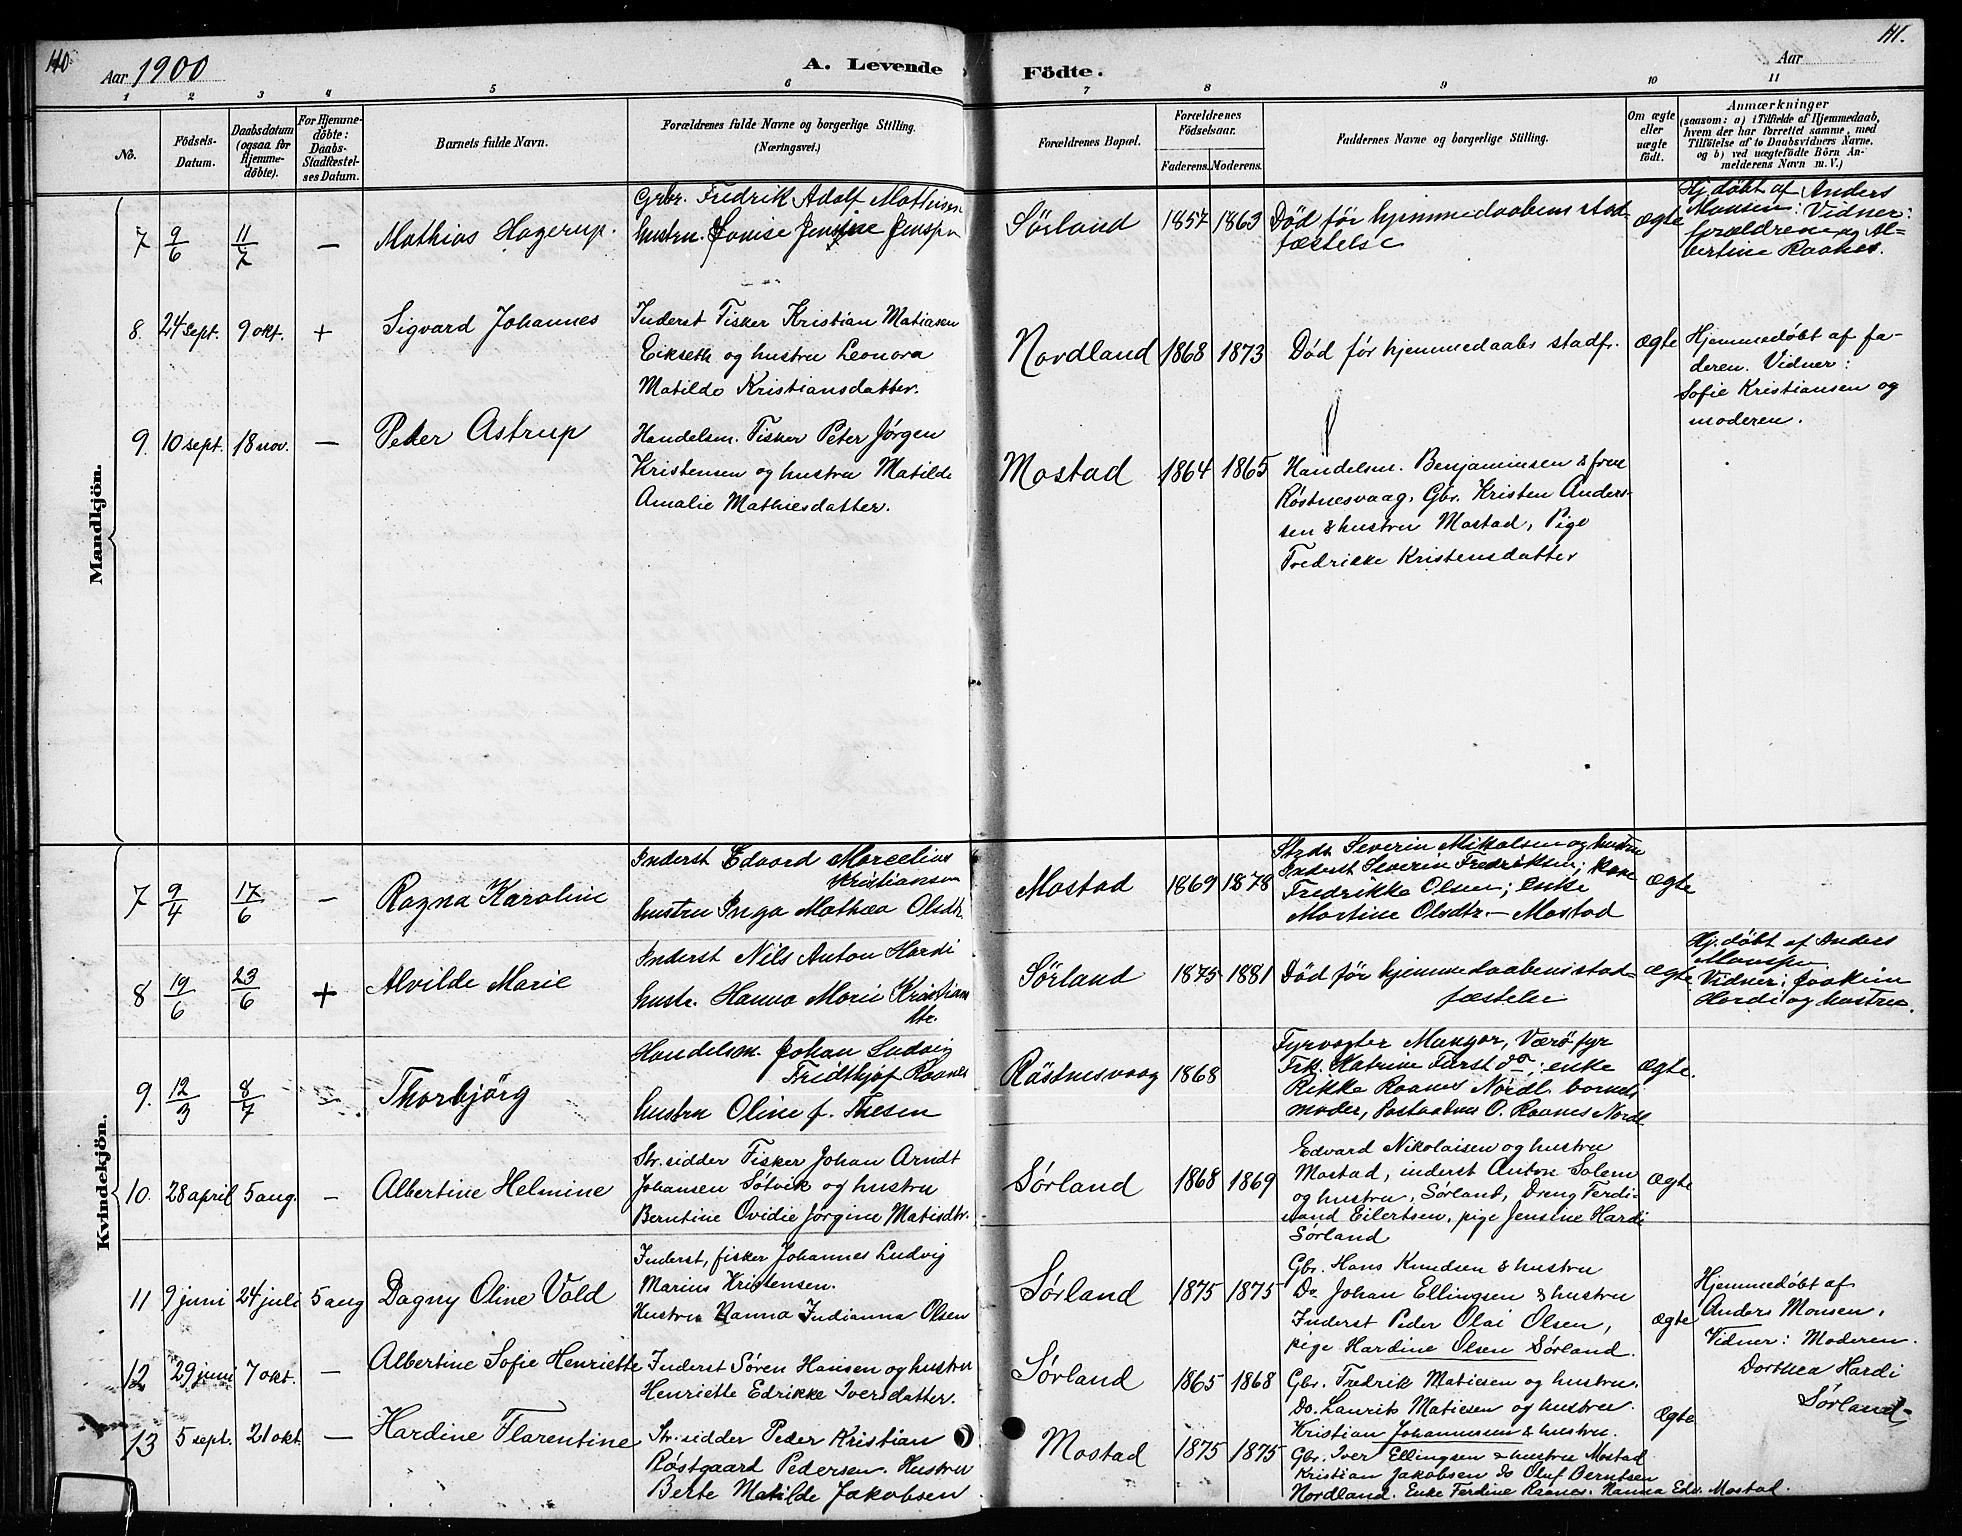 110.
Aar 1900
A. Levende Födte.
111.
Aar
1 2 3 4 5 6 7 8 9 10 11
No.
Födsels-
Datum.
Daabsdatum
(ogsaa for
Hjemme-
döbte).
For Hjemme-
döbte:
Daabs-
Stadfæstel-
ses Datum.
Barnets fulde Navn.
Forældrenes fulde Navne og borgerlige Stilling.
(Næringsvei.)
Forældrenes Bopæl.
Forældrenes
Födselsaar.
Faderens. Moderens.
Faddernes Navne og borgerlige Stilling.
Om ægte
eller
uægte
født.
Anmærkninger
(saasom: a) i Tilfælde af Hjemmedaab,
hvem der har forrettet samme, med
Tilföielse af to Daabsvidners Navne.
og b) ved uægtefödte Börn An-
melderens Navn m. V.)
Mandkjön.
7 9/6 11/7 — Mathias Hagerup.
Grbr. Fredrik Adolf Mathisen
hustru. Lovise Jensine Jensen
Sörland 1857 1863
Död før hjemmedaabens stad-
fæstelse
ægte
Hj. døbt af Anders
Monsen: Vidner:
forældrene og Al-
bertine Raanes.
8. 24 sept. 9 okt. + Sigvard Johannes
Inderst Fisker Kristian Matiasen
Eikseth og hustru Leonora
Matilde Kristiansdatter.
Nordland 1868 1873
Død før hjemmedaabs stadf.
ægte
Hjemmedøbt af fa-
deren. Vidner:
Sofie Kristiansen og
moderen.
9. 10 sept. 18 nov. — Peder Astrup
Handelsm. Fisker Peter Jørgen
Kristensen og hustru Matilde
Amalie Mathiesdatter.
Mostad 1864 1865
Handelsm. Benjaminsen & frue
Røstnesvaag, Gbr. Kristen Anders-
sen & hustru Mostad, Pige
Fredrikke Kristensdatter
Kvindekjön.
7 9/4 17/6 — Ragna Karoline
Inderst Edvard Marcelius
Kristiansen
hustru Inga Mathea Olsdtr.
Mostad 1869 1878
Strds. Severin Mikalsen og hustru
Inderst Severin Fredriksen; kone
Fredrikke Olsen; enke
Martine Olsdtr. – Mostad
ægte
8 19/6 23/6 + Alvilde Marie
Inderst Nils Anton Hardi
hustr. Hanna Marie Kristians
dtr.
Sörland 1875 1881
Död før hjemmedaabens stad-
fæstelse
ægte
Hj. döbt af Anders
Monsen
Vidner: Joakim
Hardi og hustru.
9. 12/3 8/7 — Thorbjörg
Handelsm. Johan Ludvig
Fridthjof Raanes
hustru Oline f. Thesen
Röstnesvaag 1868
Fyrvogter Mangor, Værö fyr
Frk. Katrine Farst do; enke
Rikke Raanes Nordl. barnets
moder, Postaabner O. Raanes Nordl.
ægte.
10. 28 april 5 aug. — Albertine Helmine
Str. sidder Fisker Johan Arndt
Johansen Sølvik og hustru
Berntine Ovidie Jørgine Matisdtr.
Sørland 1868 1869
Edvard Nikolaisen og hustru
Mostad, inderst Anton Solem
og hustru, Sørland, Dreng Ferdi-
nand Eilertsen, pige Jensine Hardi
Sørland
ægte
11 9 juni 24 juli 5 aug Dagny Oline Vold
Inderst, fisker Johannes Ludvig
Marius Kristensen.
Hustru Hanna Indianna Olsen
Sørland 1875 1875
Gbr. Hans Knudsen & hustru
Do. Johan Ellingsen & hustru
Inderst Peder Olai Olsen,
pige Hardine Olsen Sørland.
ægte
Hjemmedøbt af
Anders Monsen.
Vidner: Moderen.
Dorthea Hardi
Sørland
12 29 juni 7 okt. — Albertine Sofie Henriette
Inderst Søren Hansen og hustru
Henriette Edrikke Iversdatter.
Sørland 1865 1868
Gbr. Fredrik Matiesen og hustru.
Do. Laurits Matiesen og hustru.
Kristian Johannesen & hustru.
Ægte
13 5 sept. 21 okt. — Hardine Florentine
Str. sidder Peder Kristian
Røstgaard Pedersen. Hustru
Berte Matilde Jakobsen
Mostad 1875 1875
Gbr. Iver Ellingsen & hustru Mostad
Kristian Jakobsen do Oluf Berntsen
Nordland. Enke Ferdine Raanes. Hanna Edv. Mostad.